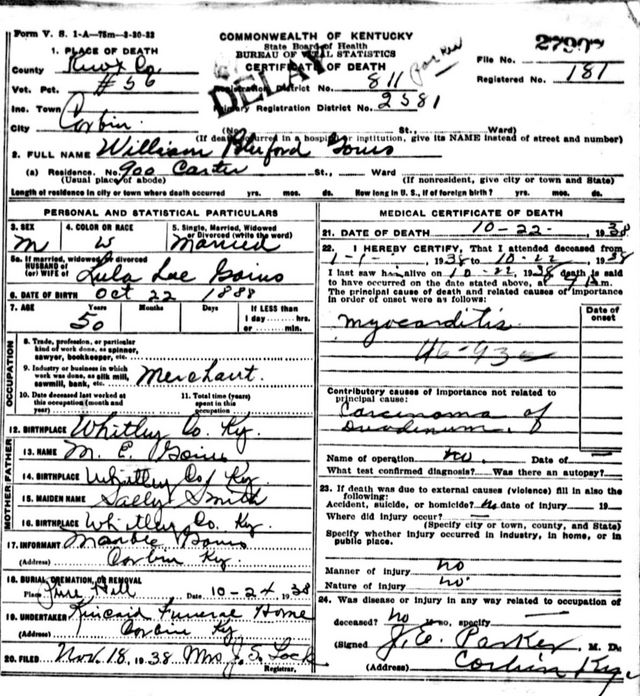 Form V. S. 1-A—75m—3-30-33
COMMONWEALTH OF KENTUCKY
State Board of Health
BUREAU OF VITAL STATISTICS
CERTIFICATE OF DEATH
DELAY
Parker
1. PLACE OF DEATH
County Knox Co.
Vot. Pct. #56
Inc. Town
City Corbin
File No. 27907
Registered No. 181
Registration District No. 811
Primary Registration District No. 2581
(No. St., Ward)
(If death occurred in a hospital or institution, give its NAME instead of street and number)
2. FULL NAME William Buford Goins
(a) Residence. No. 900 Carter St., Ward
(Usual place of abode) (If nonresident, give city or town and State)
Length of residence in city or town where death occurred yrs. mos. ds. How long in U. S., if of foreign birth? yrs. mos. ds.
PERSONAL AND STATISTICAL PARTICULARS
3. SEX M
4. COLOR OR RACE W
5. Single, Married, Widowed or Divorced (write the word) Married
5a. If married, widowed, or divorced
HUSBAND of
(or) WIFE of Lula Lee Goins
6. DATE OF BIRTH Oct 22 1888
7. AGE Years Months Days If LESS than
50 1 day hrs.
or min.
OCCUPATION
8. Trade, profession, or particular
kind of work done, as spinner,
sawyer, bookkeeper, etc.
9. Industry or business in which
work was done, as silk mill,
sawmill, bank, etc. Merchant.
10. Date deceased last worked at
this occupation (month and
year)
11. Total time (years)
spent in this
occupation
12. BIRTHPLACE Whitley Co. Ky.
FATHER
13. NAME M. E. Goins
14. BIRTHPLACE Whitley Co. Ky
MOTHER
15. MAIDEN NAME Sally Smith
16. BIRTHPLACE Whitley Co. Ky.
17. INFORMANT Goins
(Address) Corbin Ky.
18. BURIAL, CREMATION, OR REMOVAL
Place Pine Hill Date 10-24 1938
19. UNDERTAKER Kincaid Funeral Home
(Address) Corbin Ky
20. FILED Nov. 18, 1938 Mrs J. S. Lock
Registrar.
MEDICAL CERTIFICATE OF DEATH
21. DATE OF DEATH 10-22-, 1938
22. I HEREBY CERTIFY, That I attended deceased from
1-1-, 1938 to 10-22, 1938
I last saw him alive on 10-22, 1938 death is said
to have occurred on the date stated above, at m.
The principal cause of death and related causes of importance
in order of onset were as follows:
Date of
onset
Myocarditis
46-93c
Contributory causes of importance not related to
principal cause:
Carcinoma of
Duodenum.
Name of operation no. Date of
What test confirmed diagnosis? Was there an autopsy?
23. If death was due to external causes (violence) fill in also the
following:
Accident, suicide, or homicide? No date of injury 19
Where did injury occur?
(Specify city or town, county, and State)
Specify whether injury occurred in industry, in home, or in
public place.
Manner of injury no
Nature of injury no
24. Was disease or injury in any way related to occupation of
deceased? no If so, specify
(Signed) J. C. Parker M. D.
(Address) Corbin Ky.